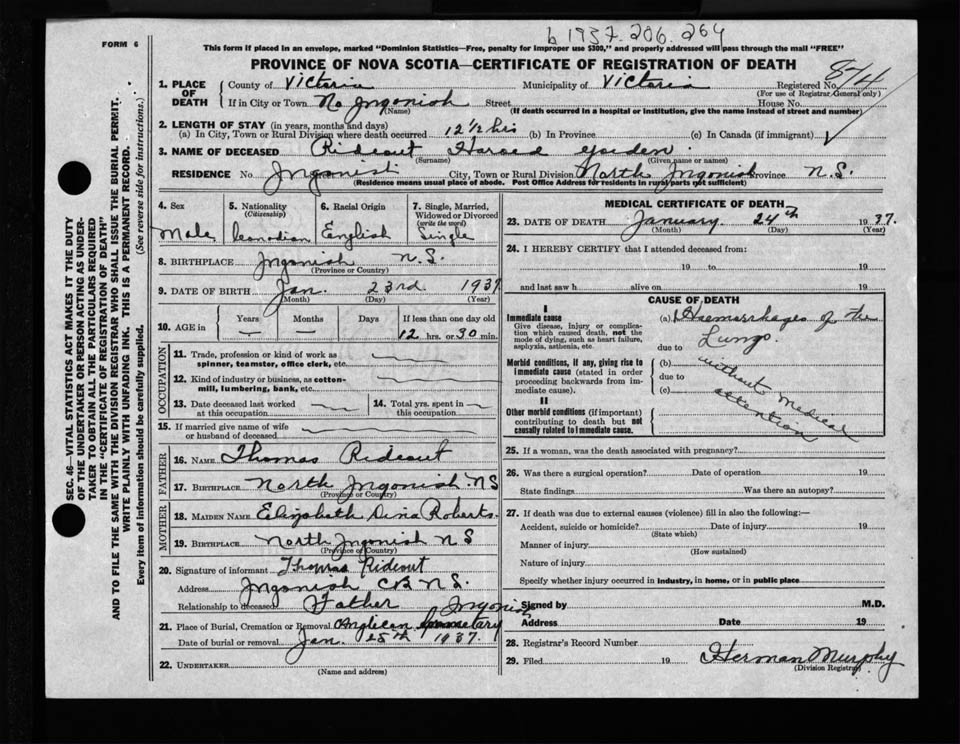 b 1937. 206. 264
FORM 6
This form if placed in an envelope, marked "Dominion Statistics—Free, penalty for improper use $300," and properly addressed will pass through the mail "FREE"
PROVINCE OF NOVA SCOTIA—CERTIFICATE OF REGISTRATION OF DEATH
1. PLACE OF DEATH
County of Victoria Municipality of Victoria Registered No. 814
(For use of Registrar General only)
If in City or Town No Ingonish Street House No.
(Name) (If death occurred in a hospital or institution, give the name instead of street and number)
2. LENGTH OF STAY (in years, months and days)
(a) In City, Town or Rural Division where death occurred 12½ hrs (b) In Province (c) In Canada (if immigrant)
3. NAME OF DECEASED Rideout Harold
(Surname) (Given name or names)
RESIDENCE No Ingonish Street City, Town or Rural Division North Ingonish Province N.S.
(Residence means usual place of abode. Post Office Address for residents in rural parts not sufficient)
4. Sex Male
5. Nationality (Citizenship) Canadian
6. Racial Origin English
7. Single, Married, Widowed or Divorced (write the word) Single
8. BIRTHPLACE Ingonish N.S.
(Province or Country)
9. DATE OF BIRTH Jan. 23rd 1937
(Month) (Day) (Year)
10. AGE in Years Months Days If less than one day old
12 hrs. or 30 min.
OCCUPATION
11. Trade, profession or kind of work as spinner, teamster, office clerk, etc.
12. Kind of industry or business, as cotton-mill, lumbering, bank, etc.
13. Date deceased last worked at this occupation
14. Total yrs. spent in this occupation
15. If married give name of wife or husband of deceased
FATHER
16. NAME Thomas Rideout
17. BIRTHPLACE North Ingonish NS
(Province or Country)
MOTHER
18. MAIDEN NAME Elizabeth Roberts.
19. BIRTHPLACE North Ingonish N S
(Province or Country)
20. Signature of informant Thomas Rideout
Address Ingonish CB N.S.
Relationship to deceased Father
21. Place of Burial, Cremation or Removal Anglican Cemetary Ingonish
Date of burial or removal Jan. 25th 1937.
22. UNDERTAKER
(Name and address)
MEDICAL CERTIFICATE OF DEATH
23. DATE OF DEATH January 24th 1937.
(Month) (Day) (Year)
24. I HEREBY CERTIFY that I attended deceased from:
19 to 19
and last saw h alive on 19
CAUSE OF DEATH
I
Immediate cause
Give disease, injury or complication which caused death, not the mode of dying, such as heart failure, asphyxia, asthenia, etc.
(a) Haemorrhages of the Lungs.
due to
Morbid conditions, if any, giving rise to immediate cause (stated in order proceeding backwards from immediate cause).
(b)
due to
(c)
without medical attention
II
Other morbid conditions (if important) contributing to death but not causally related to immediate cause.
25. If a woman, was the death associated with pregnancy?
26. Was there a surgical operation? Date of operation 19
State findings Was there an autopsy?
27. If death was due to external causes (violence) fill in also the following:—
Accident, suicide or homicide? Date of injury 19
(State which)
Manner of injury
(How sustained)
Nature of injury
Specify whether injury occurred in industry, in home, or in public place
Signed by M.D.
Address Date 19
28. Registrar's Record Number
29. Filed 19 Herman Murphy
(Division Registrar)
SEC. 46—VITAL STATISTICS ACT MAKES IT THE DUTY
OF THE UNDERTAKER OR PERSON ACTING AS UNDER-
TAKER TO OBTAIN ALL THE PARTICULARS REQUIRED
IN THE "CERTIFICATE OF REGISTRATION OF DEATH"
AND TO FILE THE SAME WITH THE DIVISION REGISTRAR WHO SHALL ISSUE THE BURIAL PERMIT.
WRITE PLAINLY WITH UNFADING INK. THIS IS A PERMANENT RECORD.
Every item of information should be carefully supplied. (See reverse side for instructions.)